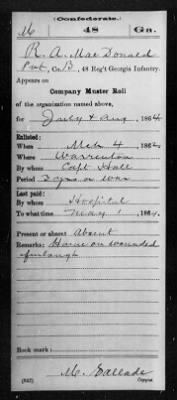 (Confederate.)
M 48 Ga.
R. A. MacDonald
Pvt, Co. B, 48 Reg't Georgia Infantry.
Appears on
Company Muster Roll
of the organization named above,
for July & Aug, 1864
Enlisted:
When Mch 4, 1862
Where Warrenton
By whom Capt Hall
Period 3 yrs or war
Last paid:
By whom Hospital
To what time May 1, 1864.
Present or absent Absent
Remarks: Home on wounded
furlough
Book mark:
(642)
Copyist.